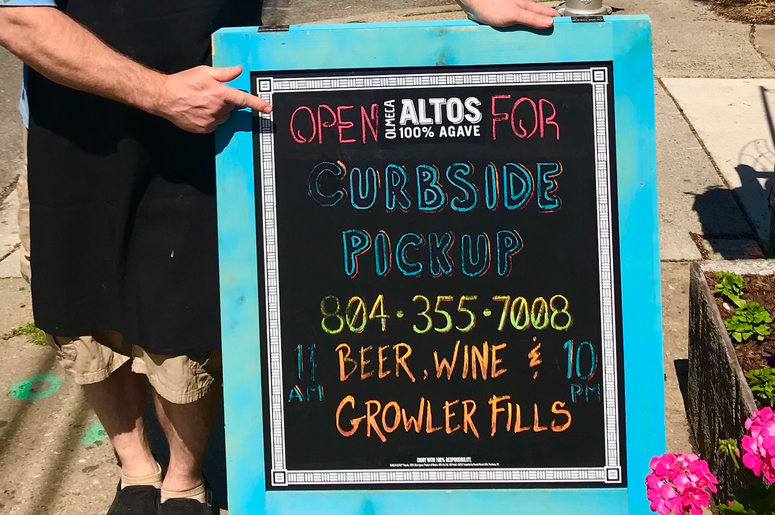 OPEN OLMECA ALTOS 100% AGAVE FOR
CURBSIDE
PICKUP
804·355·7008
11 AM BEER, WINE & 10 PM
GROWLER FILLS
ENJOY WITH 100% RESPONSIBILITY.